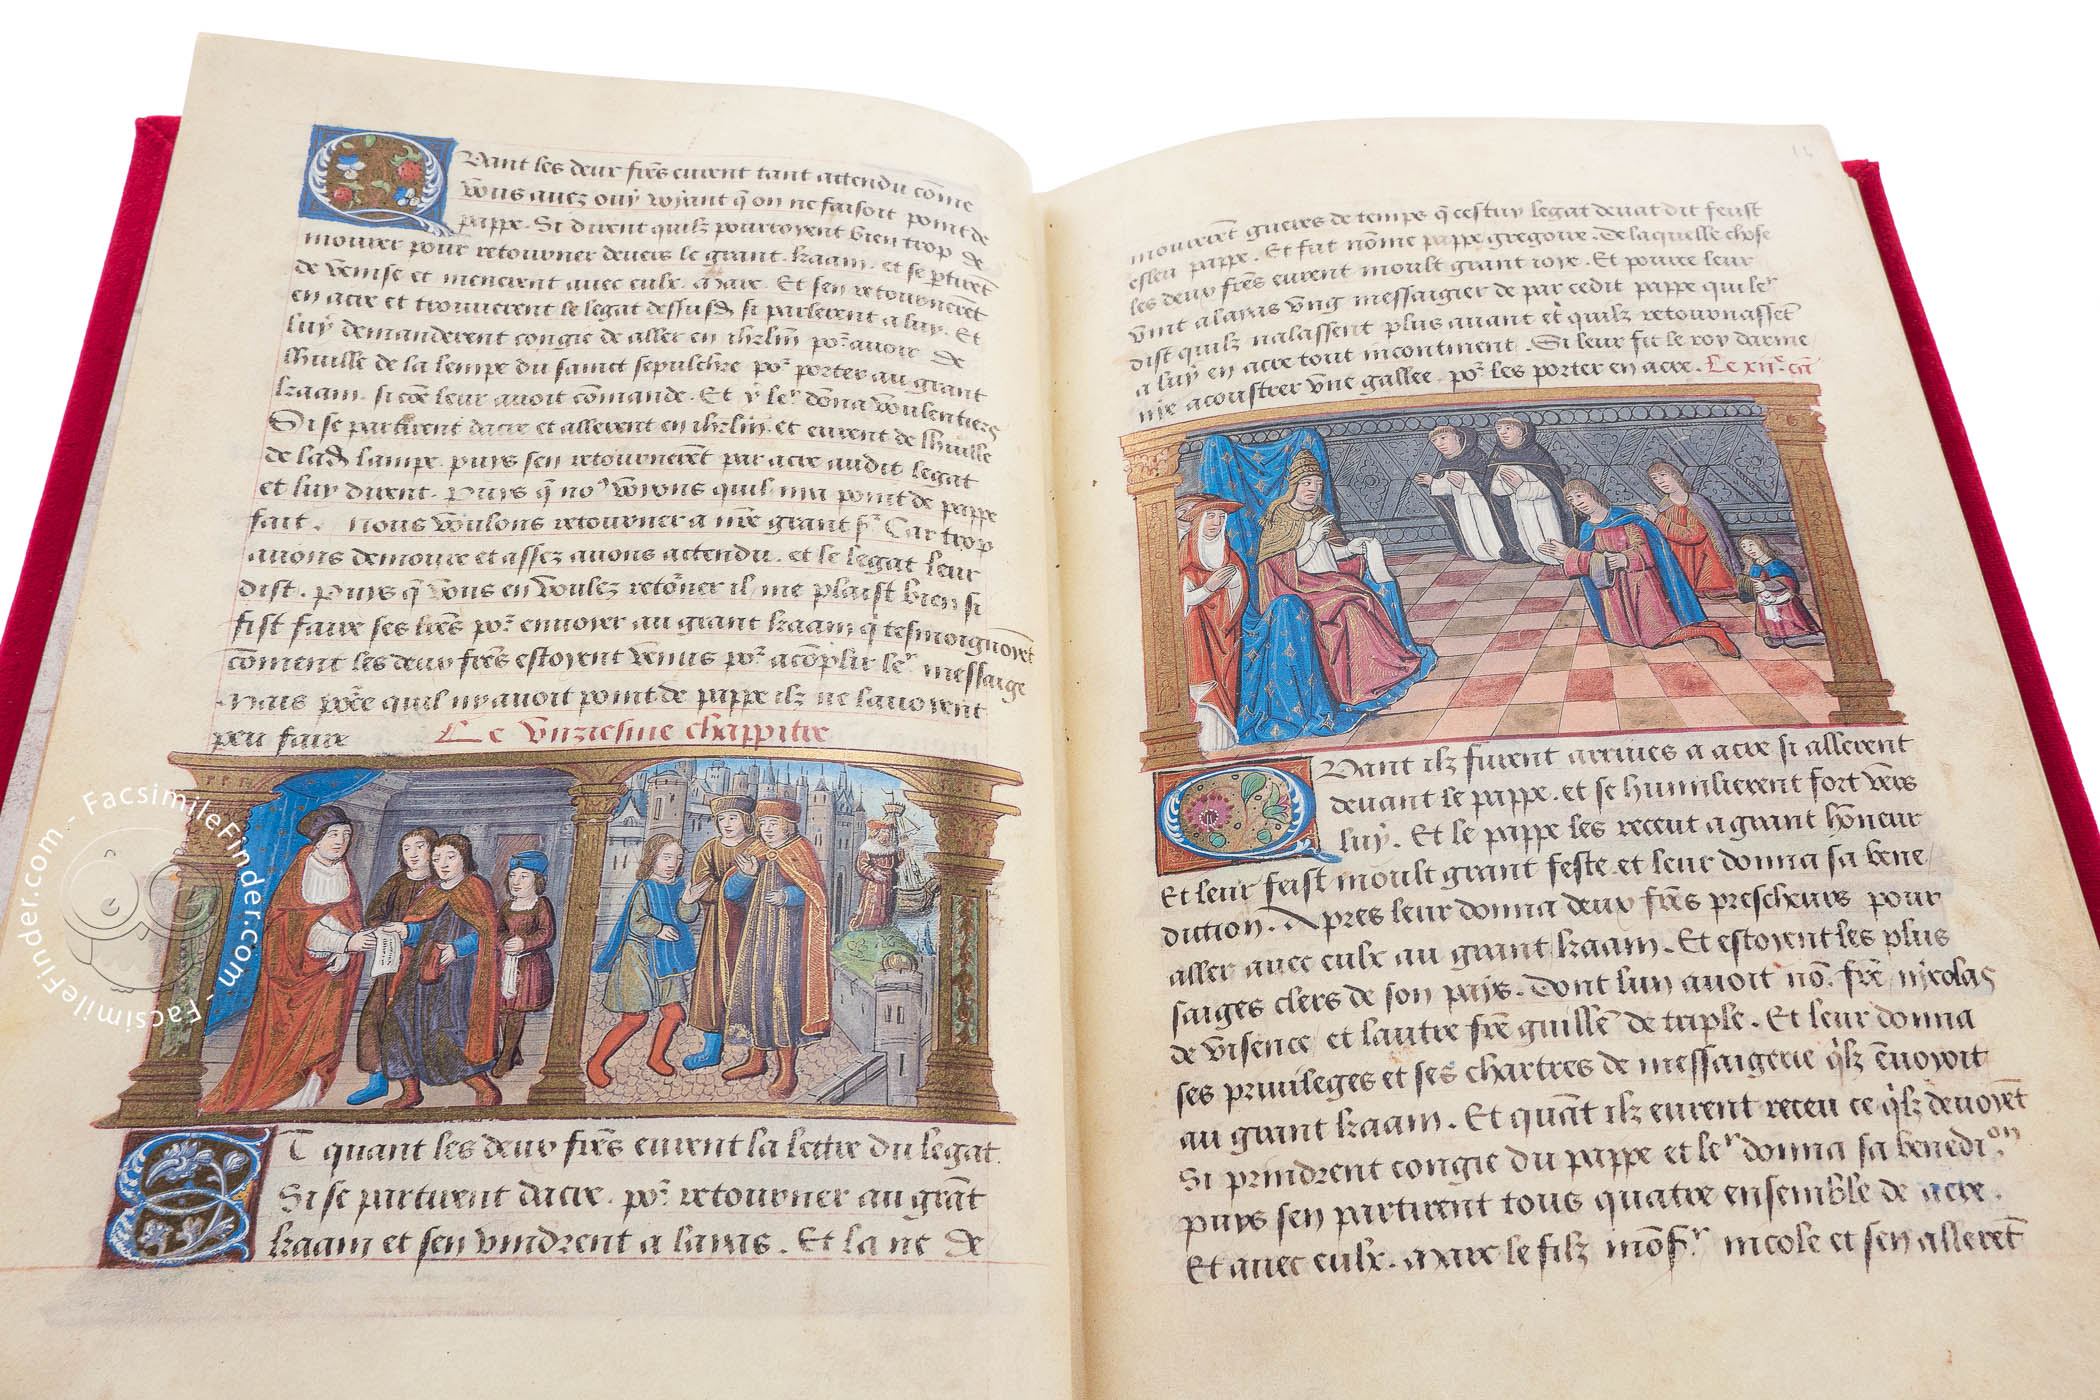 Vant les deux frēs eurent tant attendu cōme
vous auez ouy voyant q̄ on ne faisoit point de
pappe. Si dirent quilz pourroyent bien trop de
mourer pour retourner deuers le grant. kaam. et se ptirēt
de venise et menerent auec eulx. Marc. Et sen retournerēt
en acre et trouuerent le legat dessusd. si parlerent a luy. Et
luy demanderent congie de aller en ihrlm̄ po᷑ auoir de
lhuille de la lempe du sainct sepulchre po᷑ porter au grant
kaam. si cōe leur auoit cōmande. Et y le᷑ dōna voulentiers
Si se partirent dacre et allerent en ihrlm̄. et eurent de lhuille
de lad. lampe. puys sen retournerēt par acre audit legat
et luy dirent. Puys q̄ no᷒ voyons quil ny a point de pappe
fait. nous voulons retourner a nr̄e grant sr᷑. Car trop
auons demoure et assez auons attendu. et le legat leur
dist. Puys q̄ vous en voulez retōner il me plaist bien si
fist faire ses lrēs po᷑ enuoyer au grant kaam q̄ tesmoignoyēt
cōment les deux frēs estoyent venus po᷑ acōplir le᷑ messaige
Mais pōrce quil ny auoit point de pappe ilz ne lauoyent
peu faire
Le vnziesme chappitre
T quant les deux frēs eurent la lettre du legat.
Si se partirent dacre. po᷑ retourner au grāt
kaam et sen vindrent a layas. Et la ne de
mourerēt gueres de temps q̄ cestuy legat deuāt dit feust
esleu pappe. Et fut nōme pappe gregoire. De laquelle chose
les deux frēs eurent moult grant ioye. Et pource leur
vint a layas vng messaigier de par cedit pappe qui le᷑
dist quilz nalassent plus auant et quilz retournassēt
a luy en acre tout incontinent. Si leur fit le roy darme
nye acoustrer vne gallee. po᷑ les porter en acre. Le xii.ᵉ cā
Vant ilz furent arriues a acre si allerent
deuant le pappe. et se humilierent fort vers
luy. Et le pappe les receut a grant hōneur
Et leur feist moult grant feste. et leur donna sa bene
diction. Apres leur donna deux frēs prescheurs pour
aller auec eulx au grant kaam. Et estoyent les plus
saiges clers de son pays. Dont lun auoit nō. frē nycolas
de visence et lautre frē guillē de triple. Et leur donna
ses priuileges et ses chartres de messaigerie q̄lz ēuoyoit
au grant kaam. Et quāt ilz eurent receu ce q̄lz deuoyēt
Si prindrent congie du pappe et le᷑ donna sa benediᵒⁿ.
puys sen partirent tous quatre ensemble de acre.
Et auec eulx. Marc le filz mōs᷑ nicole et sen allerēt
FacsimileFinder.com - FacsimileFinder.com - FacsimileFinder.com